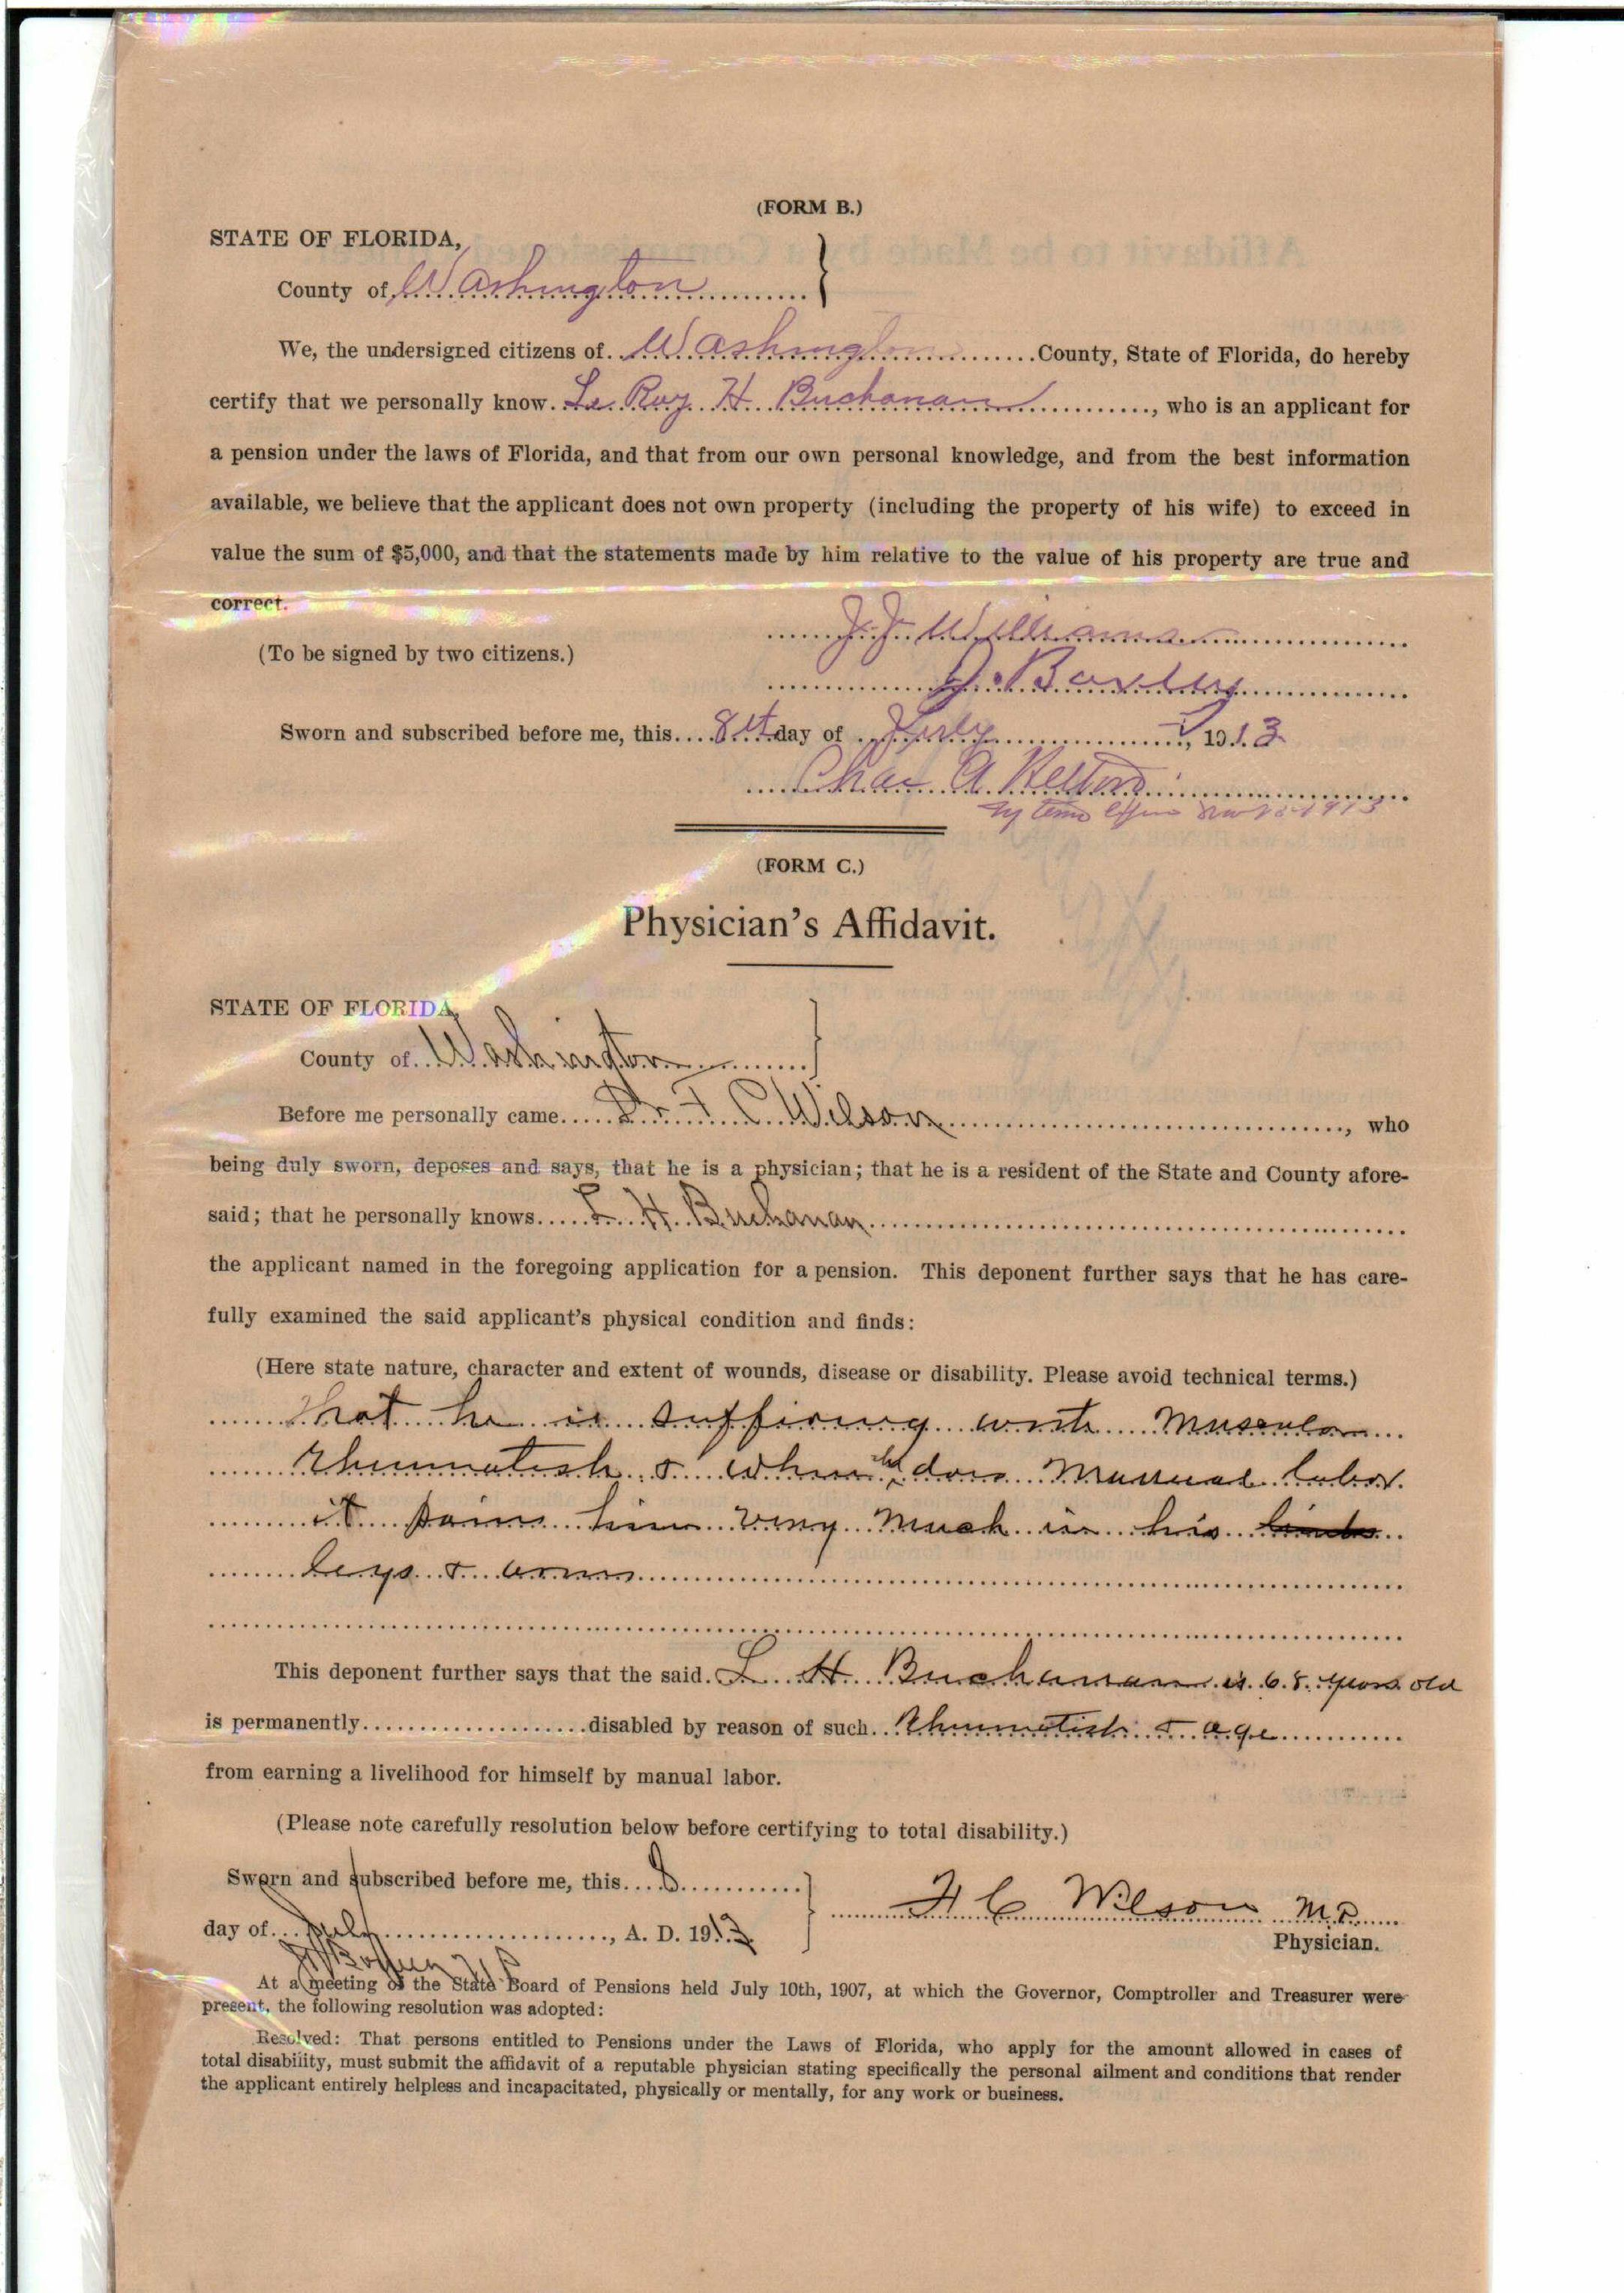 (FORM B.)
STATE OF FLORIDA,
County of Washington
We, the undersigned citizens of Washington County, State of Florida, do hereby
certify that we personally know Le Roy H. Buchanan, who is an applicant for
a pension under the laws of Florida, and that from our own personal knowledge, and from the best information
available, we believe that the applicant does not own property (including the property of his wife) to exceed in
value the sum of $5,000, and that the statements made by him relative to the value of his property are true and
correct.
J. J. Williams
(To be signed by two citizens.)
J. Baxley
Sworn and subscribed before me, this 8th day of July, 1913
Chas A.
My term 1913
(FORM C.)
Physician's Affidavit.
STATE OF FLORIDA,
County of Washington
Before me personally came Dr. F. C. Wilson, who
being duly sworn, deposes and says, that he is a physician; that he is a resident of the State and County afore-
said; that he personally knows L. H. Buchanan
the applicant named in the foregoing application for a pension. This deponent further says that he has care-
fully examined the said applicant's physical condition and finds:
(Here state nature, character and extent of wounds, disease or disability. Please avoid technical terms.)
that he is suffering with muscular
Rhumatish & when he does manual labor
it pains him very much in his limbs
legs & arms
This deponent further says that the said L. H. Buchanan is 68 years old
is permanently disabled by reason of such Rhumatish & age
from earning a livelihood for himself by manual labor.
(Please note carefully resolution below before certifying to total disability.)
Sworn and subscribed before me, this 8
F C Wilson M.D.
day of July, A. D. 1913
Physician.
At a meeting of the State Board of Pensions held July 10th, 1907, at which the Governor, Comptroller and Treasurer were
present, the following resolution was adopted:
Resolved: That persons entitled to Pensions under the Laws of Florida, who apply for the amount allowed in cases of
total disability, must submit the affidavit of a reputable physician stating specifically the personal ailment and conditions that render
the applicant entirely helpless and incapacitated, physically or mentally, for any work or business.